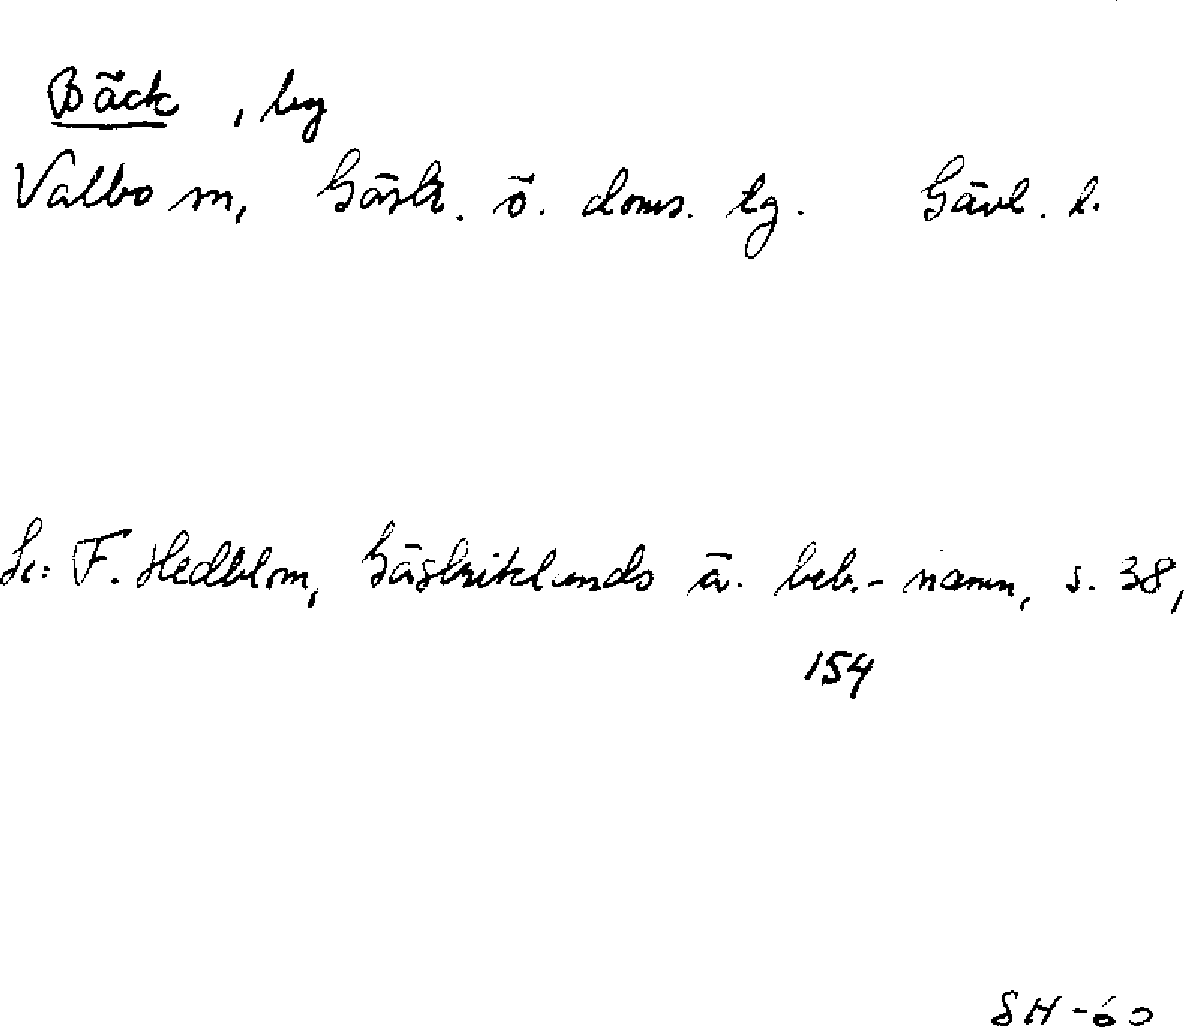 Bäck, by
Valbo sn, Gästr. ö. doms. tg. Gävl. l.
Se: F. Hedblom, Gästriklands ä. beb.-namn, s. 38,
154
SH-60